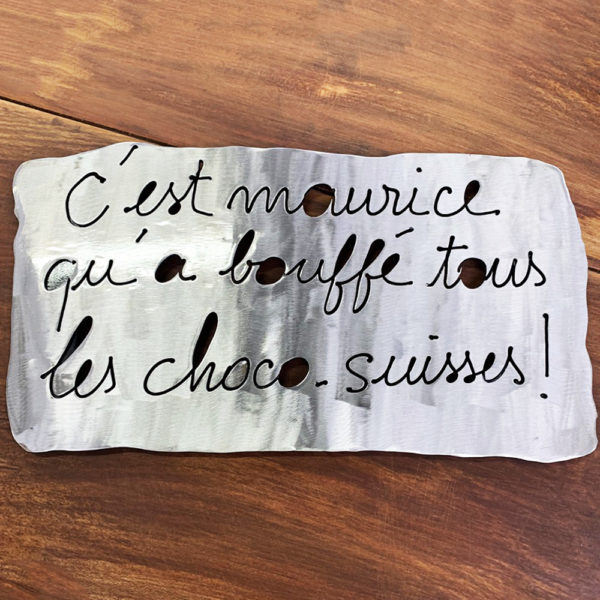 C'est maurice
qu'a bouffé tous
les choco-suisses!